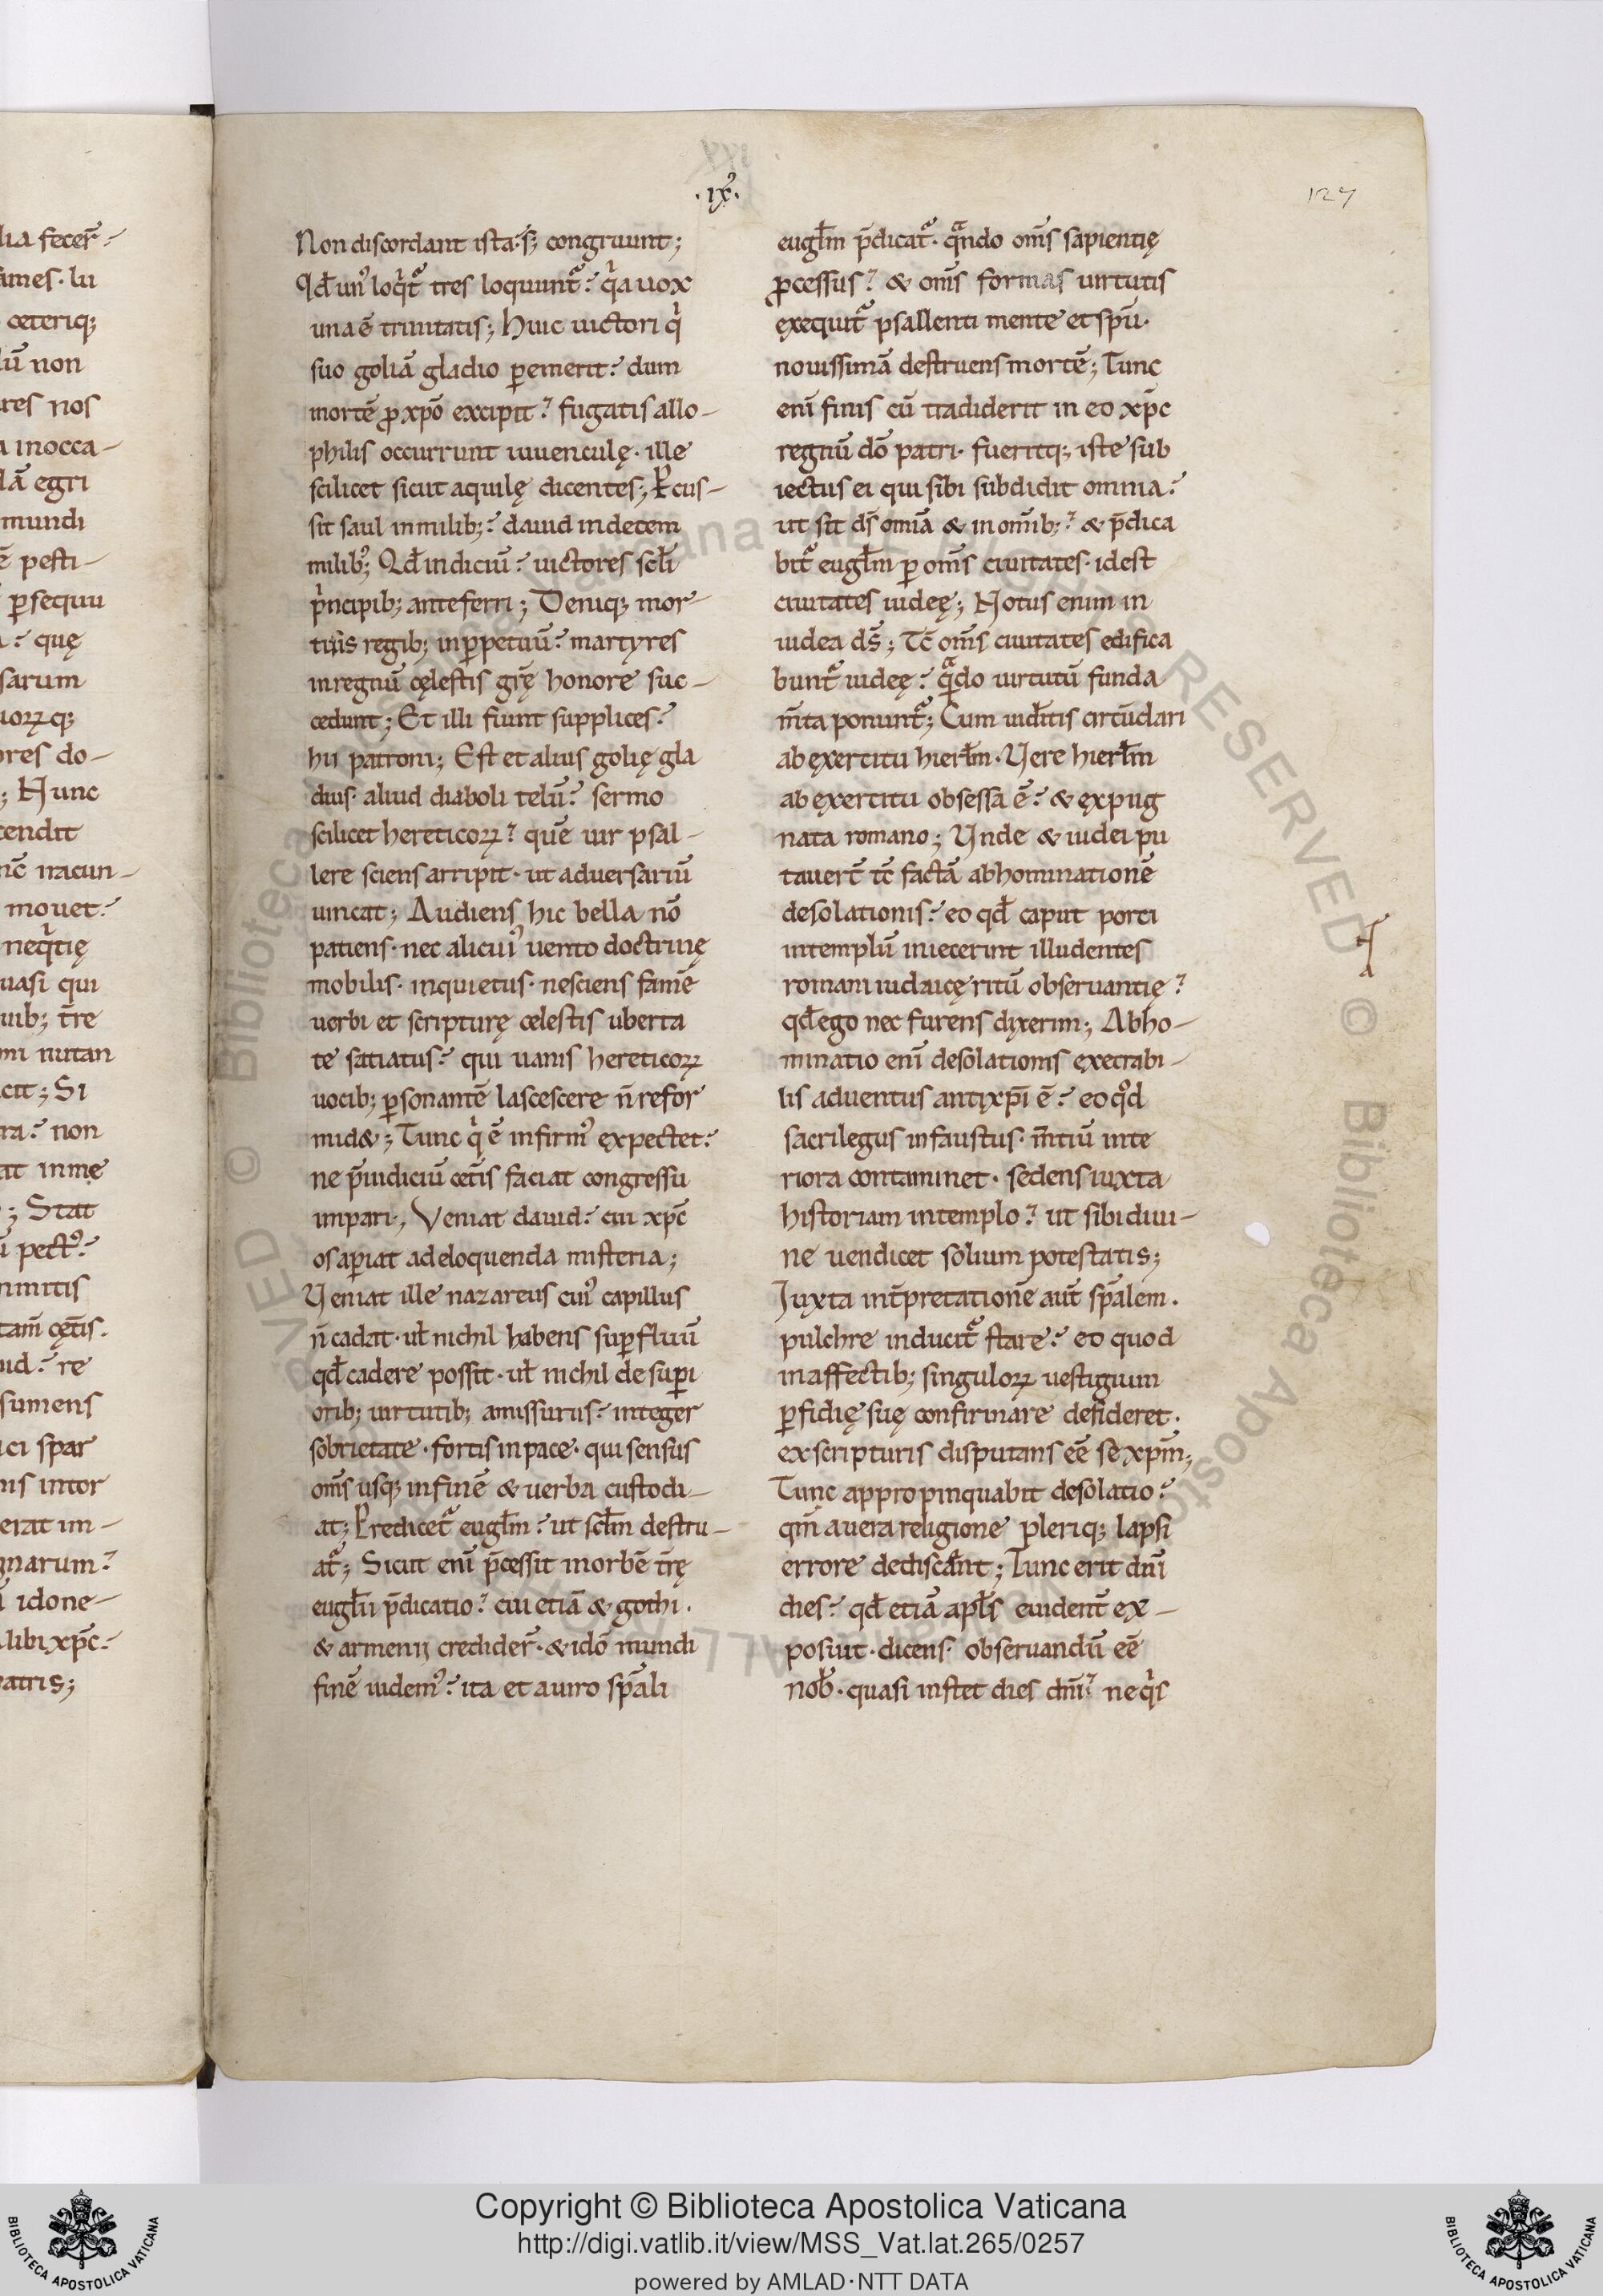 lia fecer̄.
ames. lu
ceteriq;
lū non
res nos
a inocca-
lā egri
mundi
ē pesti-
p̱sequu
a? quę
sarum
uoꝝq;
ores do-
; Hunc
cendit
nc̄ iracun-
mouet?
neqͥtię
uasi qui
uib; t̄re
mi nutan
cit; Si
ra? non
at in me
; Stat
ū pectꝰ?
nmitis
tam̄ cęt̄is.
uid? re
sumens
ici spar
nis intor
erat im-
gnarum?
ū idone-
libi xp̄c?
patris;
XXI
.ix̊.
127
Non discordant ista. s; congruunt;
Qd̄ unꝰ loqͥt᷑ tres loquunt᷑? qͥa uox
una ē trinitatis; Huic uictori qͥ
suo goliā gladio p̱emerit? dum
mortē ꝓ xp̄o excipit? fugatis allo-
philis occurrunt iuuenculę. ille
scilicet sicut aquilę dicentes; P̱cus-
sit saul in milib;? dauid in decem
milib; Qd̄ indiciū? uictores scl̄i
pͥncipib; anteferri; Deniq; mor-
tuis regib; in p̱petuū? martyres
in regnū cęlestis gr̄ę honore suc-
cedunt; Et illi fiunt supplices?
hii patroni; Est et alius golię gla
dius. aliud diaboli telū? sermo
scilicet hereticoꝝ? quē uir psal-
lere sciens arripit. ut aduersariū
uincat; Audiens hic bella nō
patiens. nec alicuiꝰ uento doctrinę
mobilis. inquietus. nesciens famē
uerbi et scripturę celestis uberta
te satiatus? qui uanis hereticoꝝ
uocib; p̱sonantē lascescere n̄ refor
mid&; Tunc qͥ ē infirmꝰ ęxpectet?
ne p̄iudiciū cet̄is faciat congressu
impari; Veniat dauid? cui xp̄c
os ap̱iat ad eloquenda misteria;
Veniat ille nazareus cuiꝰ capillus
n̄ cadat. ut nichil habens sup̱fluū
qd̄ cadere possit. ut nichil de sup̱i
orib; uirtutib; amissurus? integer
sobrietate. fortis in pace. qui sensus
om̄s usq; in finē & uerba custodi-
at; Predicet᷑ eugl̄m? ut scl̄m destru-
at᷑; Sicut eni̅ p̄cessit in orbē t̄rę
eugl̄ii p̄dicatio? cui etiā & gothi.
& armenii credider̄. & idō mundi
finē uidemꝰ? ita et a uiro sp̄ali
eugl̄m p̄dicat᷑. qᷓndo om̄s sapientię
ꝓcessus? & om̄s formas uirtutis
ęxequit᷑ psallenti mente et sp̄u.
nouissimā destruens mortē; Tunc
eni̅ finis cū tradiderit in eo xp̄c
regnū dō patri. fueritq; iste sub
iectus ei qui sibi subdidit omnia?
ut sit ds̄ omīa & in om̄ib;? & p̄dica
bit᷑ eugl̄m p̱ om̄s ciuitates. idest
ciuitates iudeę; Notus enim in
iudea ds̄; Tc̄ om̄s ciuitates edifica
bunt᷑ iudeę? qᷓdo uirtutū funda
m̄ta ponunt᷑; Cum uidītis circūdari
ab ęxercitu hierl̄m. Vere hierl̄m
ab ęxercitu obsessa ē? & ęxpug
nata romano; Vnde & iudei pu
tauer̄t tc̄ factā abhominationē
desolationis? eo qd̄ caput porci
in templū iniecerint illudentes
romani iudaicę ritū obseruantię?
qd̄ ego nec furens dixerim; Abho-
minatio eni̅ desolationis ęxecrabi-
lis aduentus antixp̄i ē? eo qͦd
sacrilegus infaustus. m̄tiū inte
riora contaminet. sedens iuxta
historiam in templo? ut sibi diui-
ne uendicet solium potestatis;
Iuxta int̄pretationē aut̄ sp̄alem.
pulchre inducit᷑ stare? eo quod
in affectib; singuloꝝ uestigium
p̱fidię suę confirmare desideret.
ex scripturis disputans eē se xp̄m;
Tunc appropinquabit desolatio?
qm̄ a uera religione pleriq; lapsi
errore dediscant; Tunc erit dn̄i
dies? qd̄ etiā apl̄s euident̄ ex-
posuit. dicens. obseruandū eē
nob̄. quasi instet dies dn̄i? ne qͥs
Copyright © Biblioteca Apostolica Vaticana
http://digi.vatlib.it/view/MSS_Vat.lat.265/0257
powered by AMLAD·NTT DATA
BIBLIOTECA APOSTOLICA VATICANA
BIBLIOTECA APOSTOLICA VATICANA